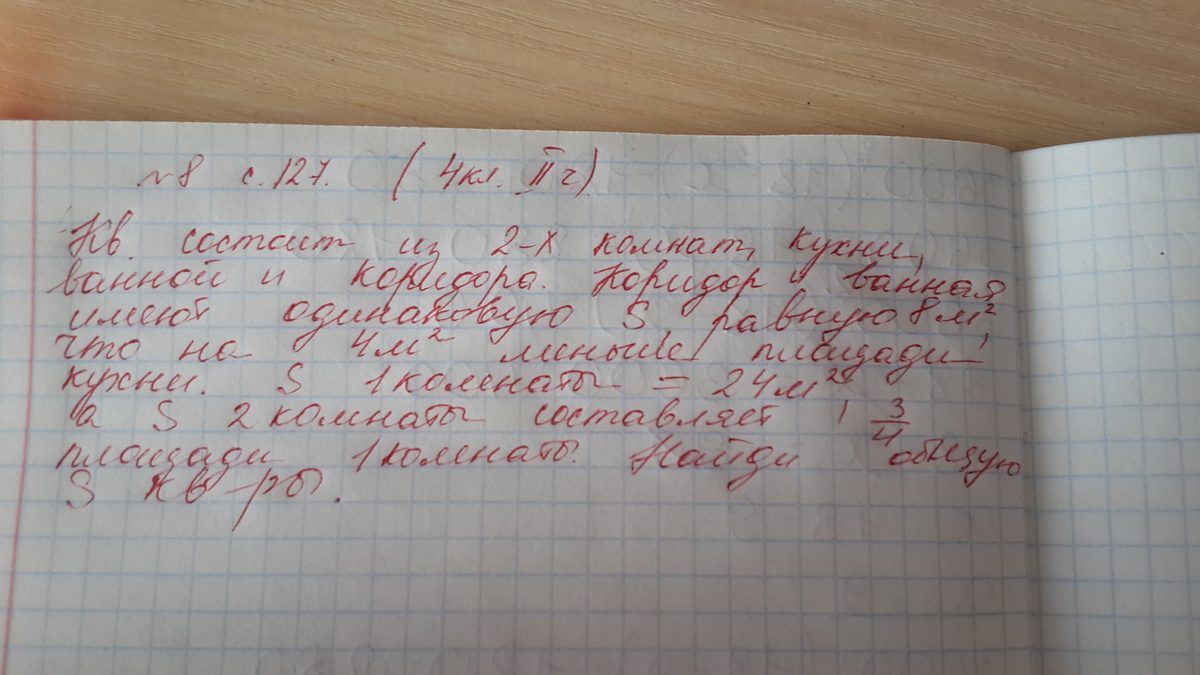 №8 с.127. (4кл. II ч)
Кв. состоит из 2-х комнат, кухни,
ванной и коридора. Коридор и ванная
имеют одинаковую S, равную 8 м²,
что на 4м² меньше площади
кухни. S 1 комнаты = 24 м²,
а S 2 комнаты составляет 3/4
площади 1 комнаты. Найди общую
S кв-ры.